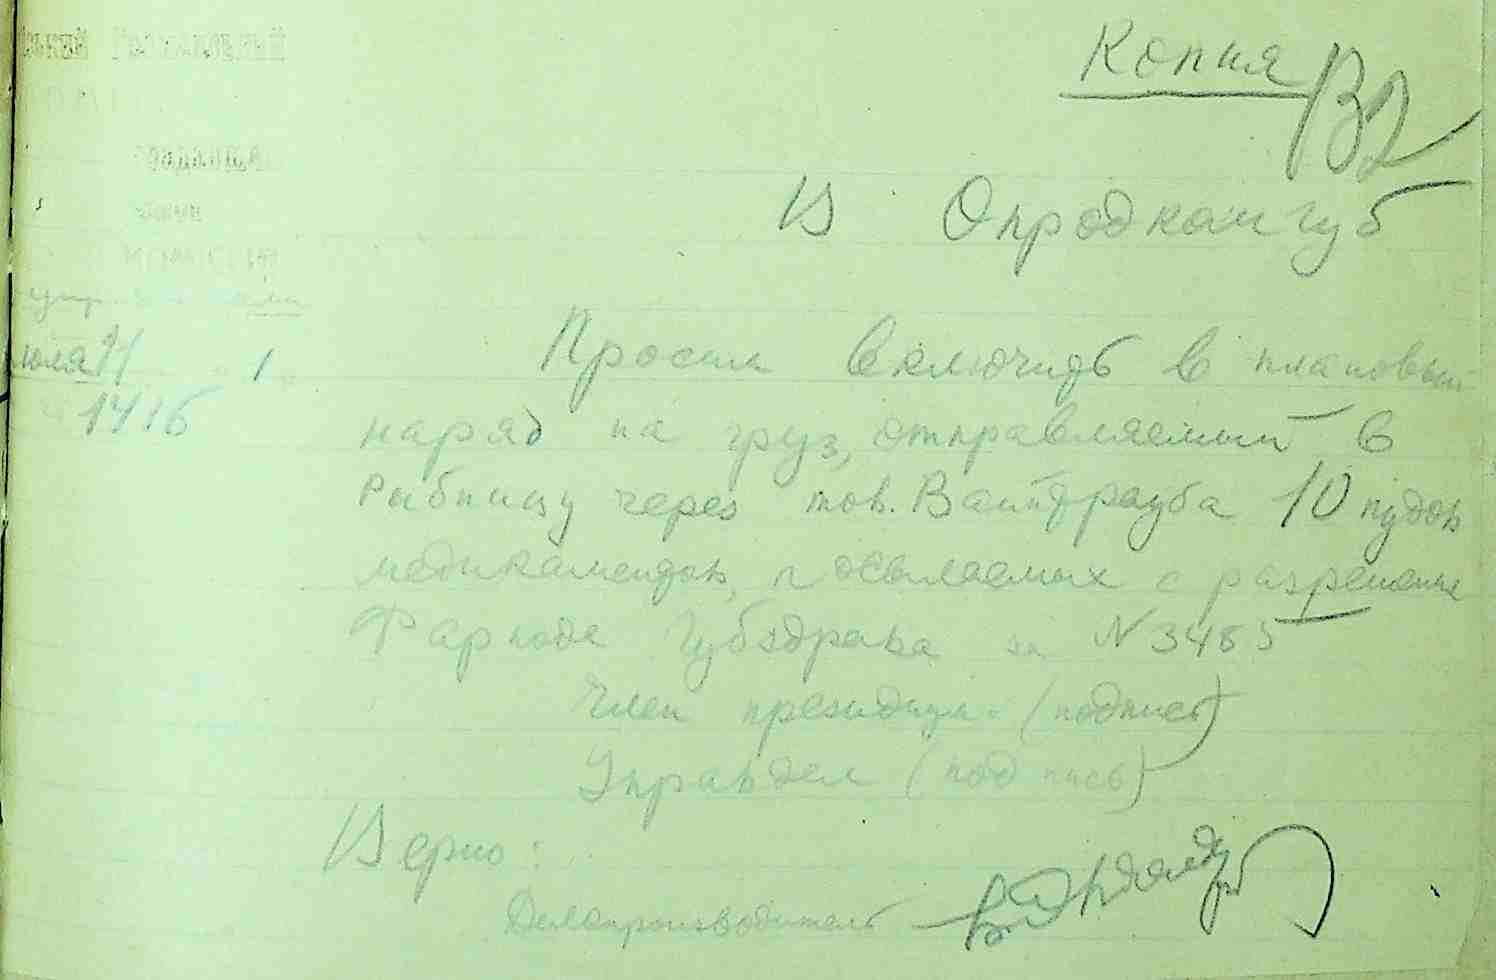 Копия
В Опродкомгуб
июля 1
1416
Просим включить в плановый
наряд на груз, отправляемый в
Рыбницу через тов. Вайнтрауба 10 пудов
медикаментов, посылаемых с разрешения
Фарпода Губздрава за N 3485
Член президиума (подпись)
Управдел (подпись)
Верно:
Делопроизводитель